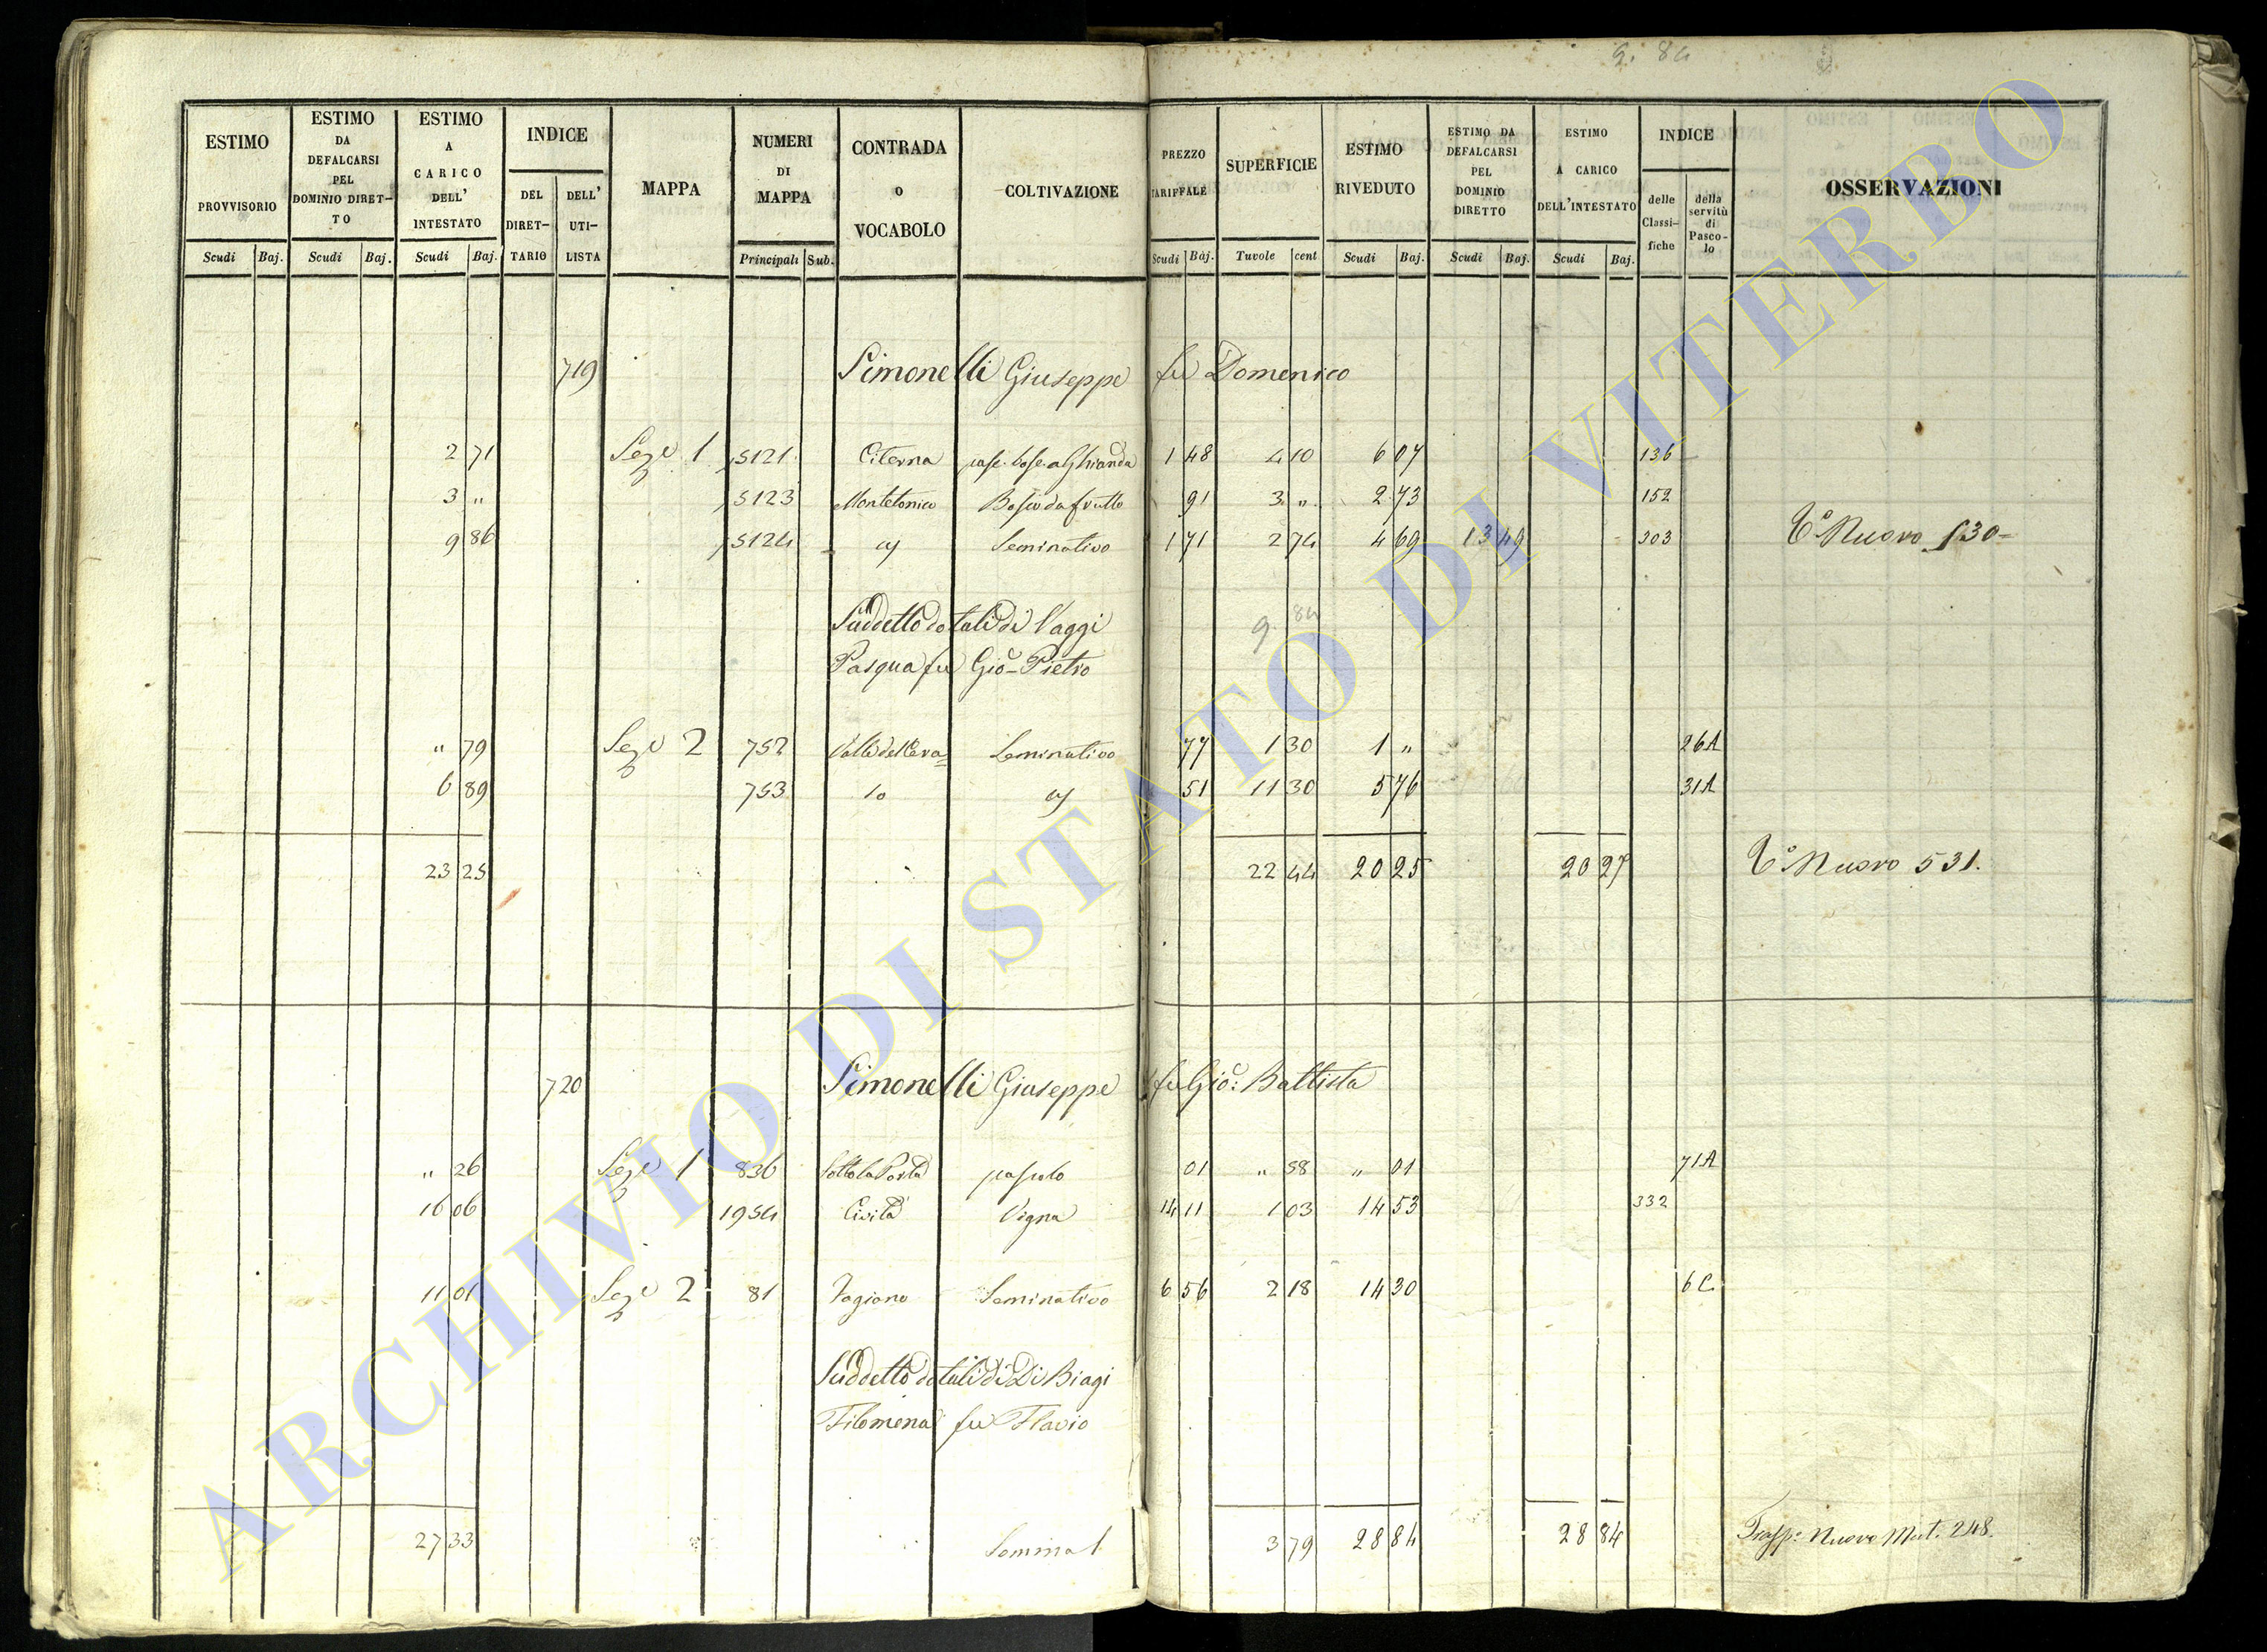 9. 84
ESTIMO PROVVISORIO Scudi Baj.
ESTIMO DA DEFALCARSI PEL DOMINIO DIRET-TO Scudi Baj.
ESTIMO A CARICO DELL' INTESTATO Scudi Baj.
INDICE DEL DIRET-TARIO DELL' UTI-LISTA
MAPPA
NUMERI DI MAPPA Principali Sub.
CONTRADA O VOCABOLO
COLTIVAZIONE
PREZZO TARIFFALE Scudi Baj.
SUPERFICIE Tavole cent
ESTIMO RIVEDUTO Scudi Baj.
ESTIMO DA DEFALCARSI PEL DOMINIO DIRETTO Scudi Baj.
ESTIMO A CARICO DELL'INTESTATO Scudi Baj.
INDICE delle Classi-fiche della servitù di Pasco-lo
OSSERVAZIONI
719 Simonelli Giuseppe fu Domenico
2 71 Sez e 1 5121 Citerna pasc. bosc. a Ghianda 1 48 4 10 6 07 136
3 " 5123 Montetonico Bosco da frutto 91 3 " 2 73 152
9 86 5124 Seminativo 1 71 2 74 4 69 13 49 303 Nuovo 530=
Suddetto dotali di Vaggi 9. 84
Pasqua fu Gio Pietro
" 79 Sez e 2 752 Seminativo 77 1 30 1 " 26A
6 89 753 51 11 30 5 76 31A
23 25 22 44 20 25 20 27 Nuovo 531.
720 Simonelli Giuseppe fu Gio: Battista
" 26 Sez e 1 836 Sotto la Porta pascolo 01 " 58 " 01 71A
16 06 1954 Civita Vigna 14 11 1 03 14 53 332
11 01 Sez e 2 81 Fagiano Seminativo 6 56 2 18 14 30 6C
Suddetto dotali di Di Biagi
Filomena fu Flavio
27 33 Seminat 3 79 28 84 28 84 Trasp.o Nuovo Mat. 248.
ARCHIVIO DI STATO DI VITERBO